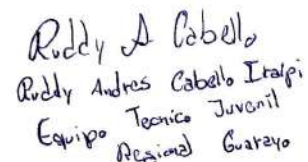 Ruddy A Cabello
Ruddy Andres Cabello Iraipi
Equipo Tecnico Juvenil
Regional Guarayo